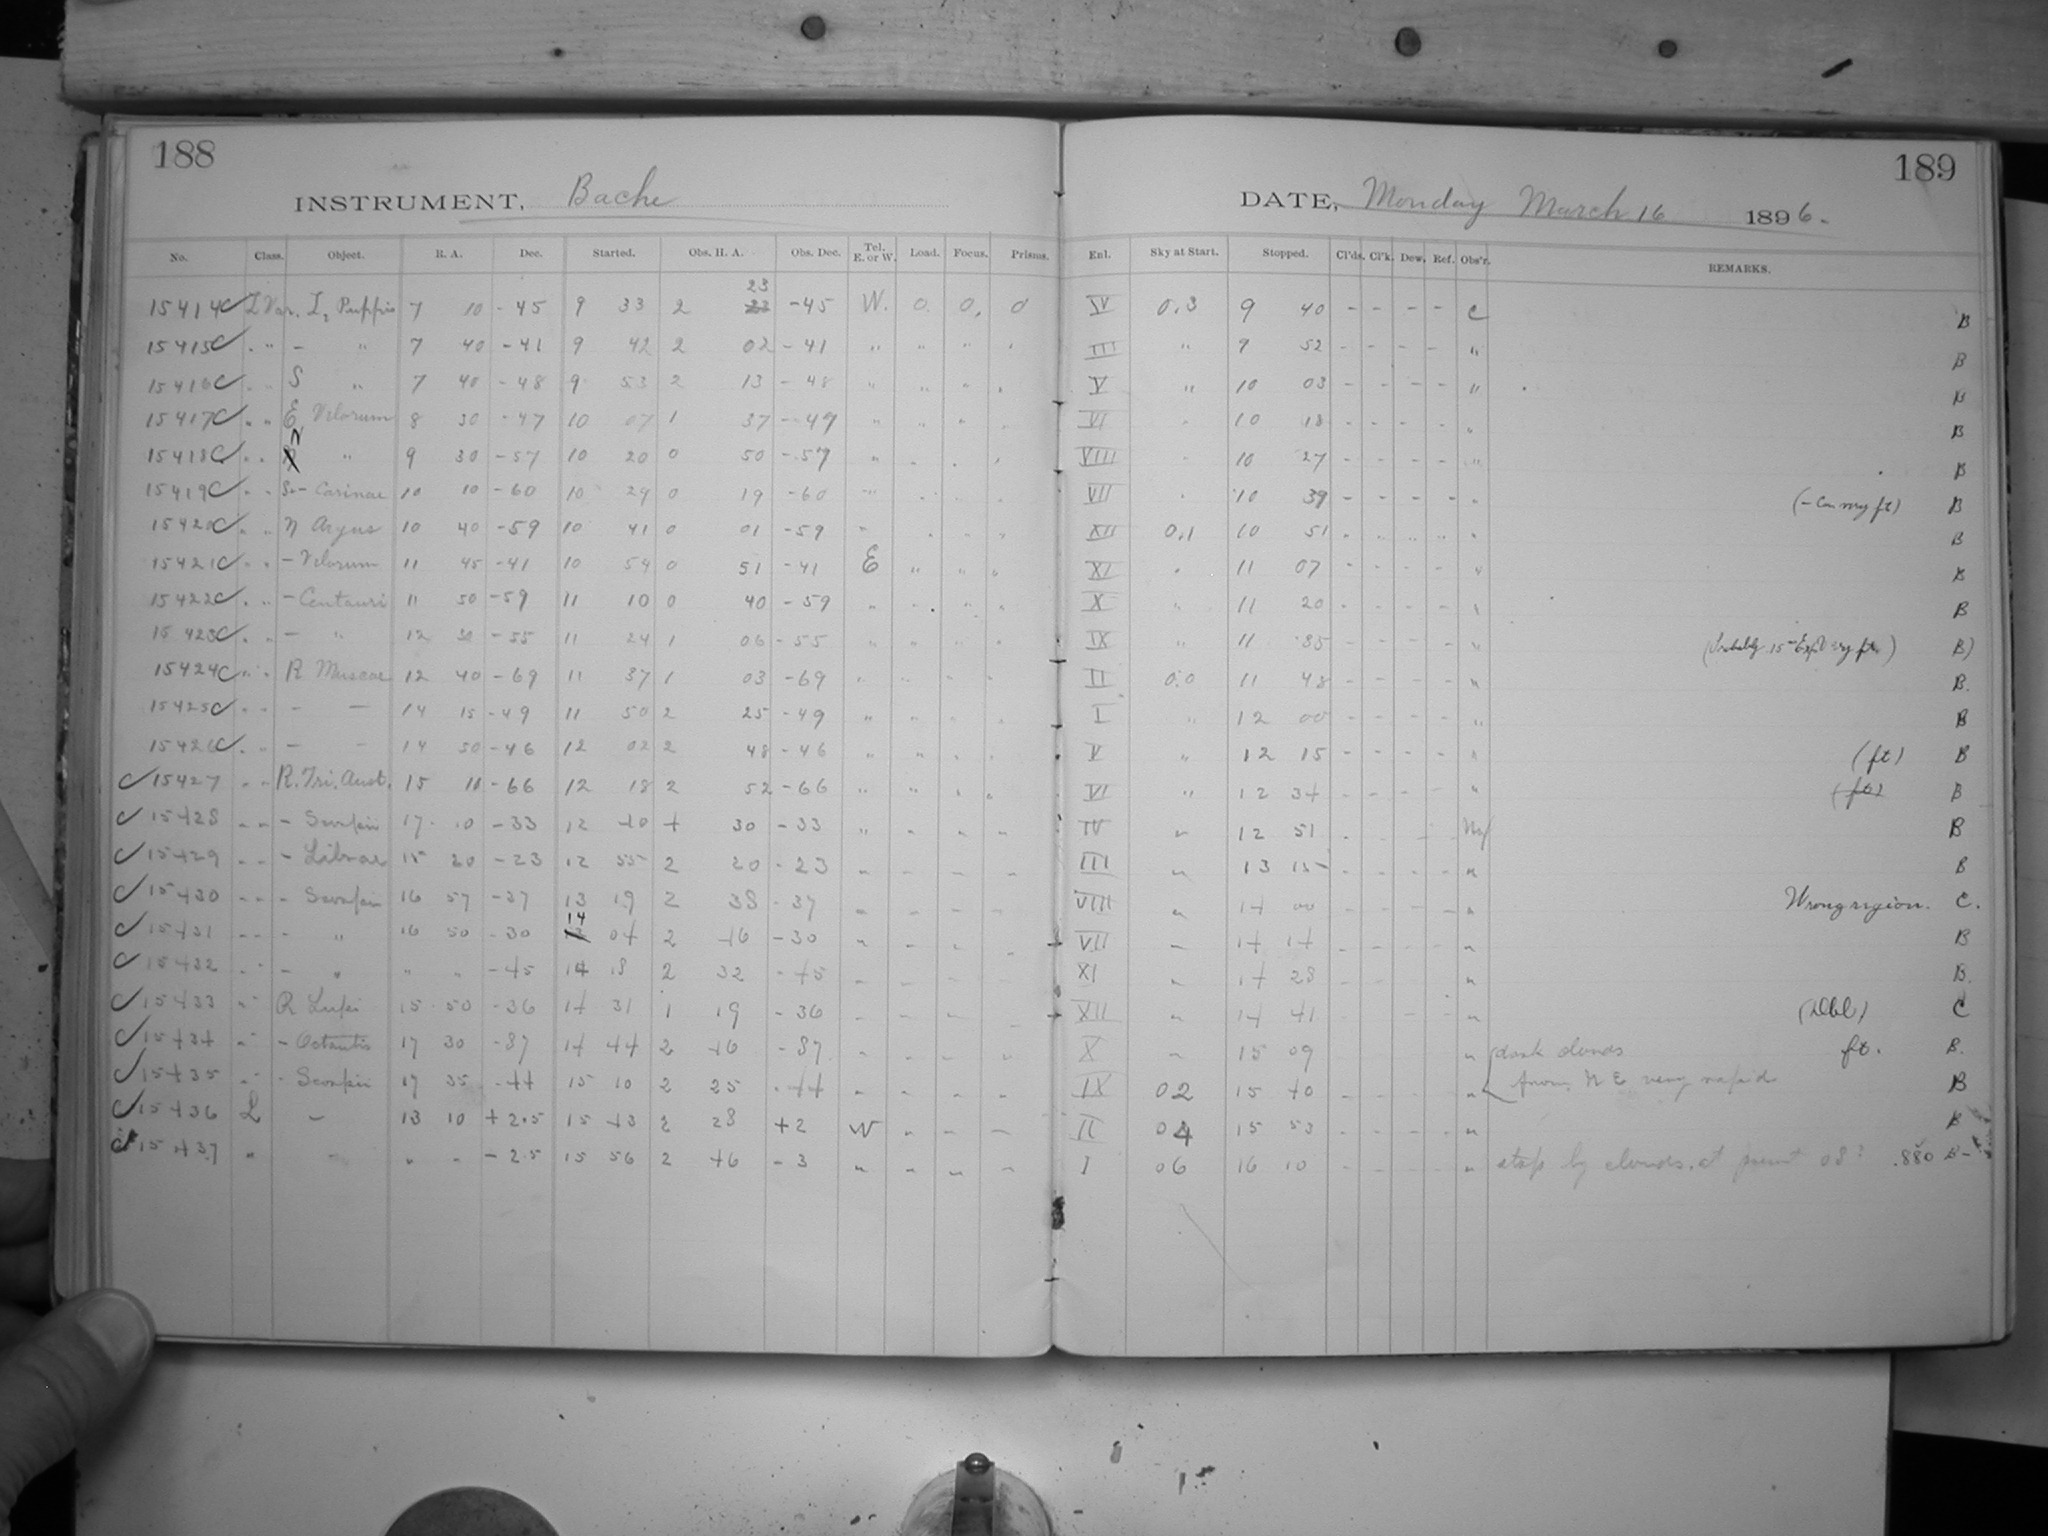 188
INSTRUMENT, Bache
No. Class. Object. R. A. Dec. Started. Obs. H. A. Obs. Dec. Tel. E. or W. Load. Focus. Prisms.
23
15414 C L Var. L₂ Puppis 7 10 - 45 9 33 2 -45 W. 0. 0. 0
15415 C . " - " 7 40 - 41 9 42 2 02 - 41 " " " "
15416 C . . S " 7 40 - 48 9 53 2 13 - 48 " " " "
15417 C " " Velorum 8 30 - 47 10 07 1 37 - 49 " " " "
15418 C . . " 9 30 - 57 10 20 0 50 - 57 " . . ,
15419 C . . - Carinae 10 10 - 60 10 29 0 19 - 60 "
15420 C . . η Argus 10 40 - 59 10 41 0 01 - 59 "
15421 C . . - Velorum 11 45 - 41 10 54 0 51 - 41 E " " "
15422 C . " - Centauri 11 50 - 59 11 10 0 40 - 59 " . " "
15423 C . . - " 12 30 - 55 11 24 1 06 - 55 " " " "
15424 C . . R Muscae 12 40 - 69 11 37 1 03 - 69
15425 C . . - - 14 15 - 49 11 50 2 25 - 49 " " . .
15426 C . " - - 14 50 - 46 12 02 2 48 - 46 " " . .
✓ 15427 . " R. Tri. Aust. 15 10 - 66 12 18 2 52 - 66 " " . .
✓ 15428 " " - Scorpii 17 10 - 33 12 40 4 30 - 33 " " " "
✓ 15429 - - - Librae 15 20 - 23 12 55 2 20 - 23 " " " "
✓ 15430 - - - Scorpii 16 57 - 37 13 19 2 38 - 37 " " " "
✓ 15431 - - - " 16 50 - 30 14 04 2 46 - 30 " " " "
✓ 15432 - - - " " " - 45 14 18 2 32 - 45 " " " "
✓ 15433 " - R Lupi 15 50 - 36 14 31 1 19 - 36 " " " "
✓ 15434 " - - Octantis 17 30 - 87 14 44 2 46 - 87 " " " "
✓ 15435 " - - Scorpii 17 35 - 44 15 10 2 25 - 44 " " " "
✓ 15436 L - 13 10 + 2.5 15 43 2 28 + 2 W " " "
✓ 15437 " - " " - 2.5 15 56 2 46 - 3 " " " "
189
DATE, Monday March 16 1896.
Enl. Sky at Start. Stopped. Cl'ds. Cl'k. Dew. Ref. Obs'r. REMARKS.
IV 0.3 9 40 - - - - C B
III " 9 52 - - - - " B
V " 10 03 - - - - " B
VI " 10 18 - - - - " B
VIII " 10 27 - - - - " B
VII " 10 39 - - - - " (- Car. very ft) B
XII 0.1 10 51 " " " " " B
XI " 11 07 - - - - " B
X " 11 20 - - - - " B
IX " 11 35 - - - - " (Probably 15m Exp. very ft.) B
II 0.0 11 48 - - - - " B.
I " 12 00 - - - - " B
V " 12 15 - - - - " (ft) B
VI " 12 34 - - - - " (ft) B
IV " 12 51 B
III " 13 15 - - - - " B
VIII " 14 00 - - - - " Wrong region. C.
VII " 14 14 - - - - " B
XI " 14 28 - - - - " B.
XII " 14 41 - - - - " (Dbl) C
X " 15 09 " dark clouds ft. B.
IX 02 15 40 - - - - " from N E very rapid B
II 04 15 53 - - - - " B
I 06 16 10 - - - - " stop by clouds, at 08? .880 B-